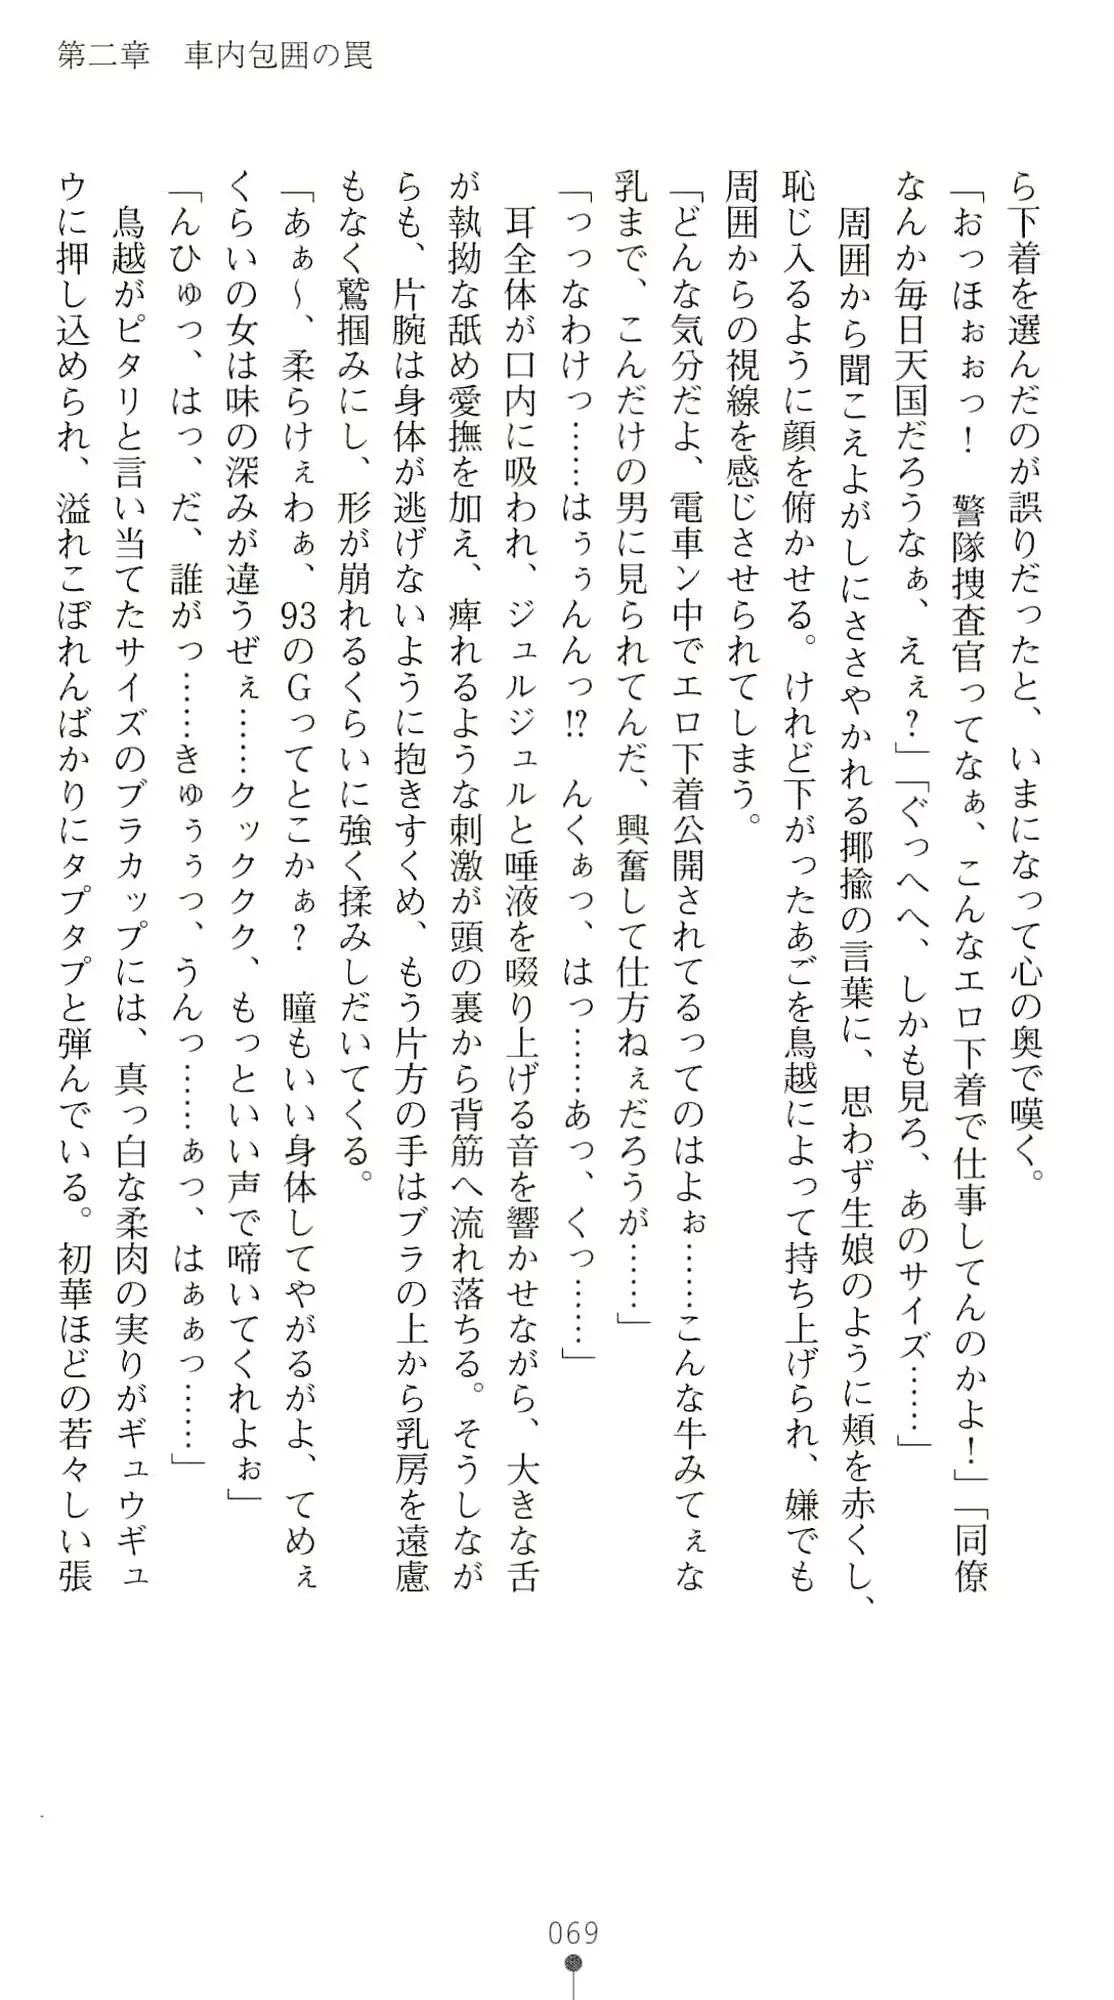 第二章　車内包囲の罠
ら下着を選んだのが誤りだったと、いまになって心の奥で嘆く。
「おっほぉぉっ！　警隊捜査官ってなぁ、こんなエロ下着で仕事してんのかよ！」「同僚
なんか毎日天国だろうなぁ、えぇ？」「ぐっへへ、しかも見ろ、あのサイズ……」
周囲から聞こえよがしにささやかれる揶揄の言葉に、思わず生娘のように頬を赤くし、
恥じ入るように顔を俯かせる。けれど下がったあごを鳥越によって持ち上げられ、嫌でも
周囲からの視線を感じさせられてしまう。
「どんな気分だよ、電車ン中でエロ下着公開されてるってのはよぉ……こんな牛みてぇな
乳まで、こんだけの男に見られてんだ、興奮して仕方ねぇだろうが……」
「っっなわけっ……はぅぅんんっ⁉　んくぁっ、はっ……あっ、くっ……」
耳全体が口内に吸われ、ジュルジュルと唾液を啜り上げる音を響かせながら、大きな舌
が執拗な舐め愛撫を加え、痺れるような刺激が頭の裏から背筋へ流れ落ちる。そうしなが
らも、片腕は身体が逃げないように抱きすくめ、もう片方の手はブラの上から乳房を遠慮
もなく鷲掴みにし、形が崩れるくらいに強く揉みしだいてくる。
「あぁ～、柔らけぇわぁ、93のGってとこかぁ？　瞳もいい身体してやがるがよ、てめぇ
くらいの女は味の深みが違うぜぇ……クックククク、もっといい声で啼いてくれよぉ」
「んひゅっ、はっ、だ、誰がっ……きゅぅぅっ、うんっ……ぁっ、はぁぁっ……」
鳥越がピタリと言い当てたサイズのブラカップには、真っ白な柔肉の実りがギュウギュ
ウに押し込められ、溢れこぼれんばかりにタプタプと弾んでいる。初華ほどの若々しい張
069